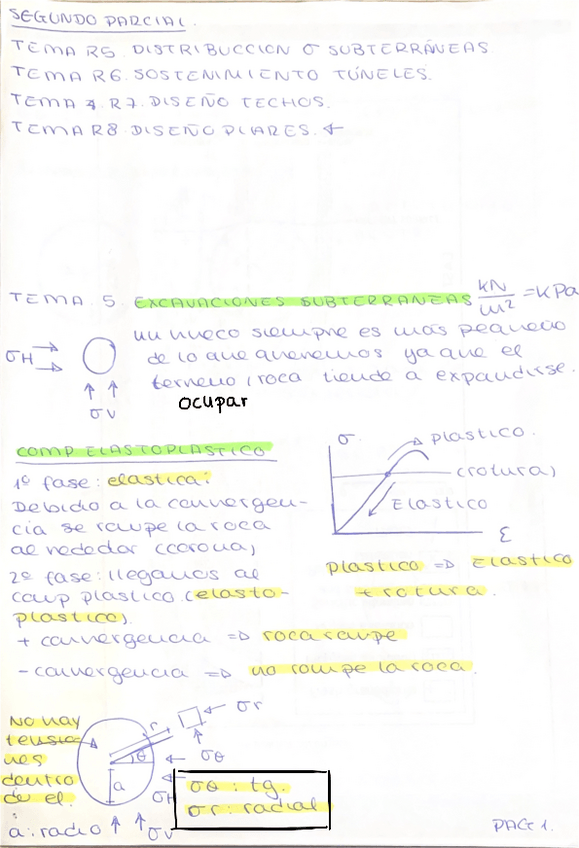 SEGUNDO PARCIAL.
TEMA R5. DISTRIBUCCION σ SUBTERRÁNEAS.
TEMA R6. SOSTENIMIENTO TÚNELES.
TEMA 7. R7. DISEÑO TECHOS.
TEMA R8. DISEÑO PILARES. ←
TEMA 5. EXCAVACIONES SUBTERRANEAS kN/m² = KPa
σH
σV
un hueco siempre es más pequeño
de lo que queremos ya que el
terreno / roca tiende a expandirse.
ocupar
COMP ELASTOPLASTICO
1º fase: elastica:
Debido a la convergen-
cia se rompe la roca
alrededor (corona)
2º fase: llegamos al
comp plastico (elasto-
plastico).
σ
plastico.
(rotura)
Elastico
ε
plastico => Elastico
+ rotura.
+ convergencia => roca rompe
- convergencia => no rompe la roca.
No hay
tensio-
nes
dentro
de el.
r
σr
θ
σθ
a
σH
σV
a: radio
σθ: tg.
σr: radial
PAG 1.